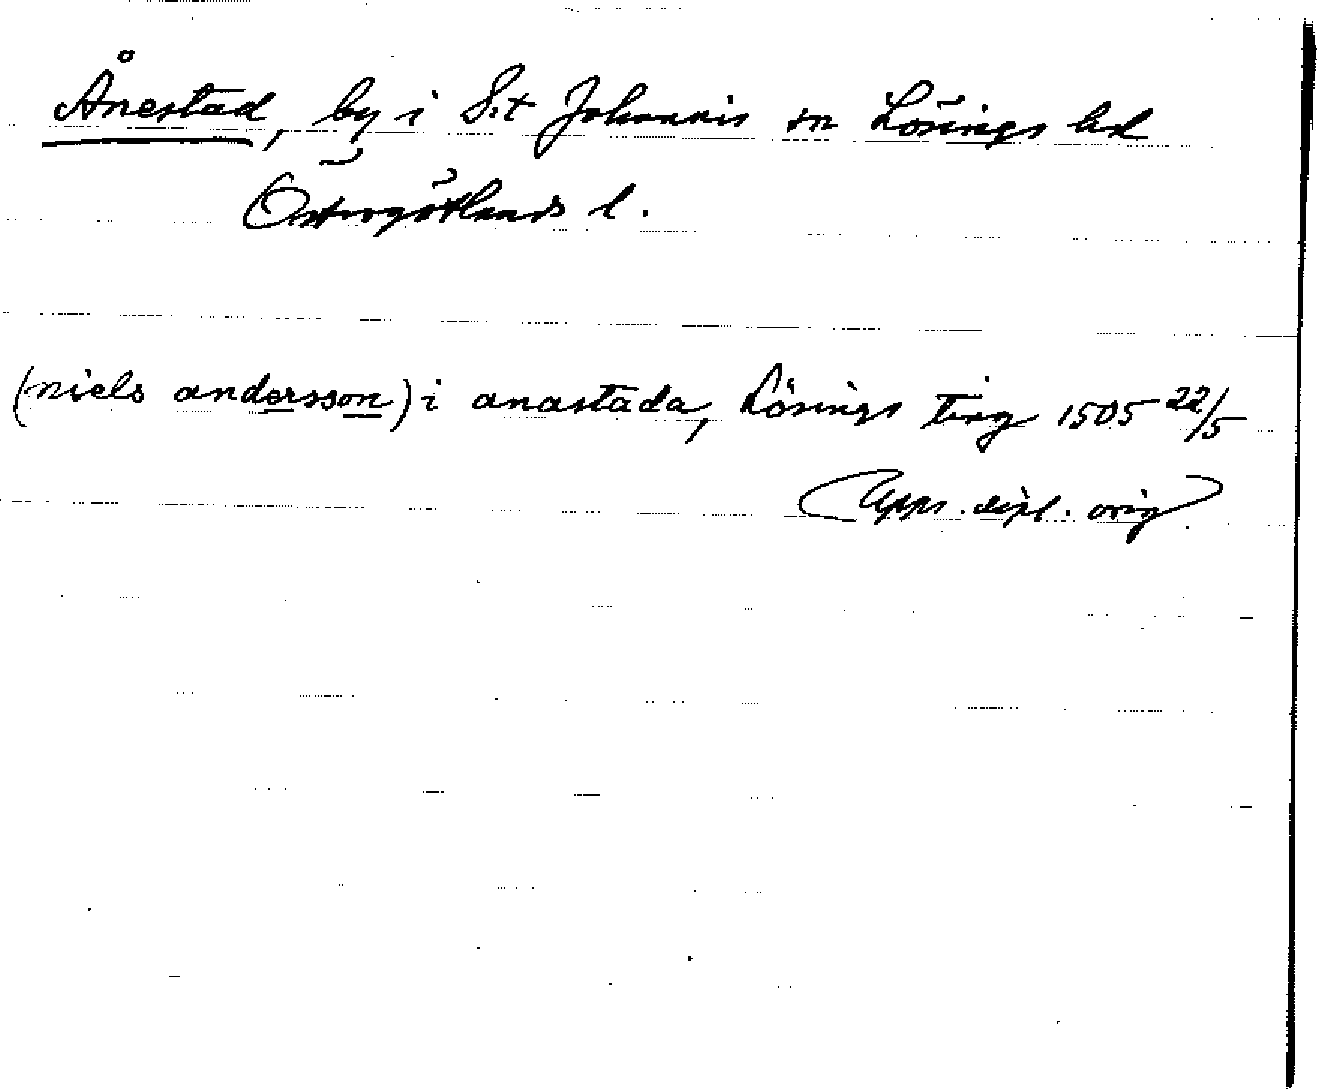 Ånestad, by i S:t Johannis sn Lösings hd
Östergötlands l.
(niels andersson) i anastada, Lösings ting 1505 22/5
(Upps. dipl. orig)